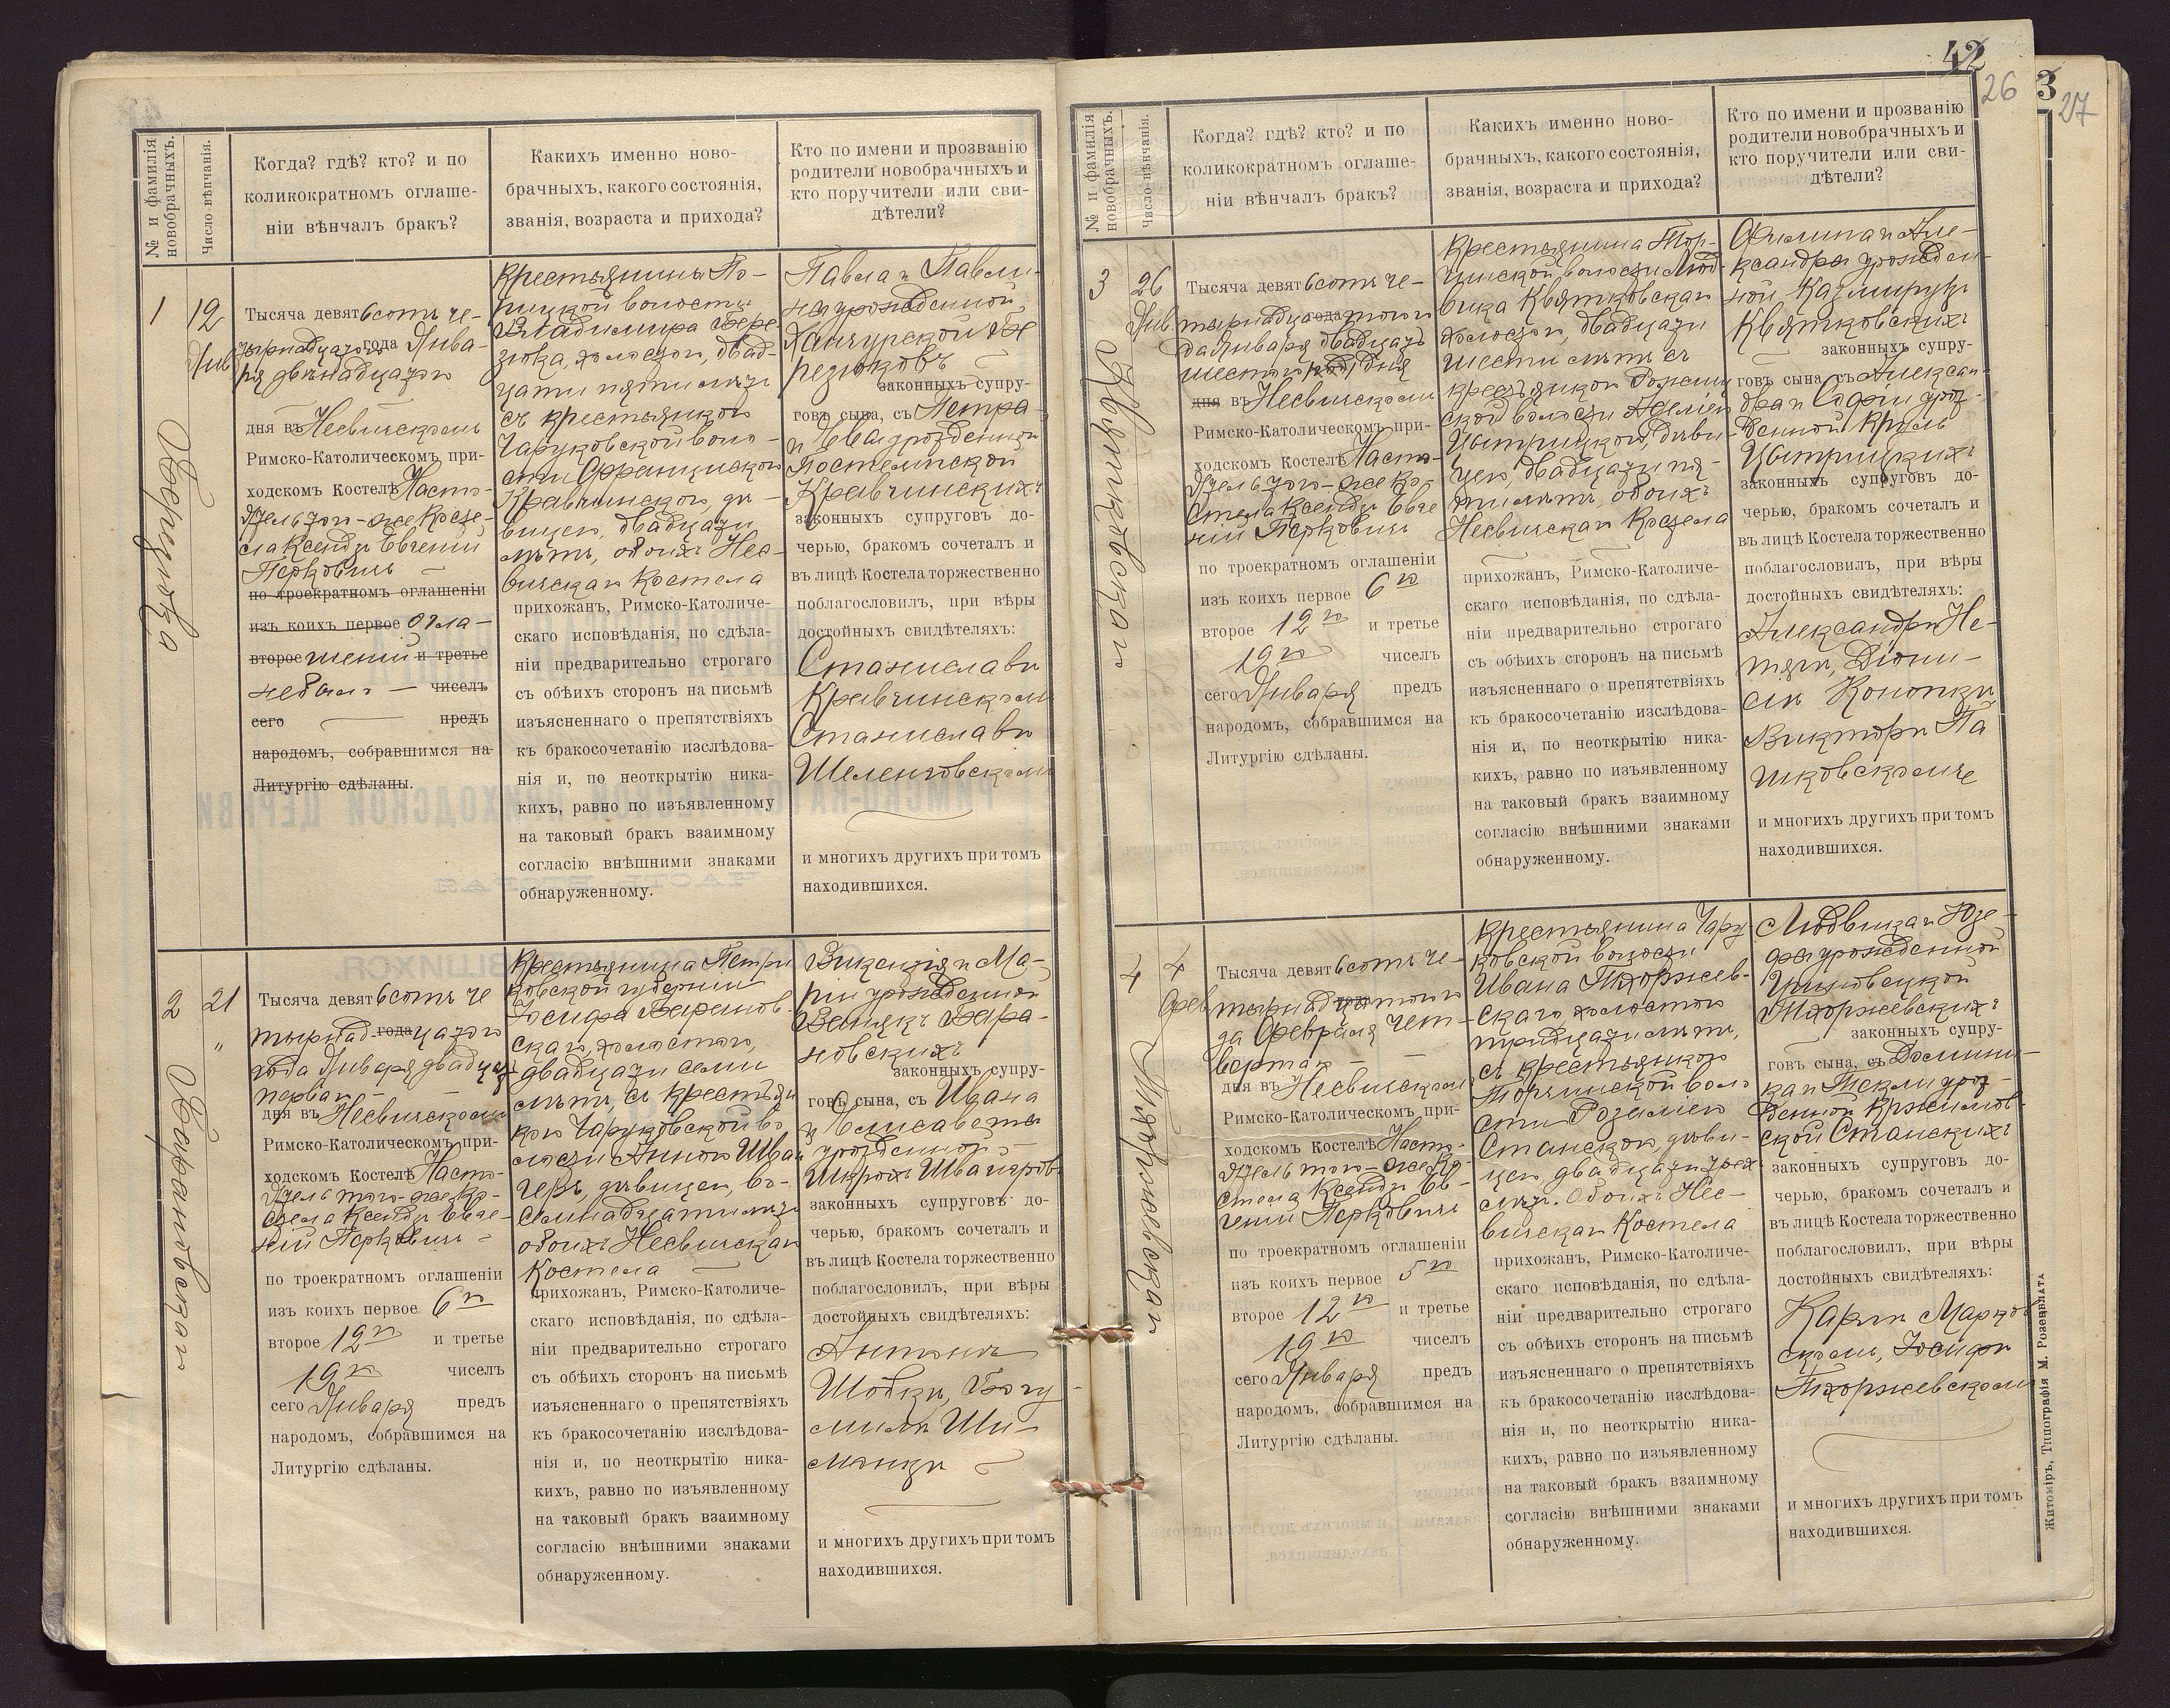 № и фамилія новобрачныхъ.
Число вѣнчанія.
Когда? гдѣ? кто? и по
коликократномъ оглаше-
ніи вѣнчалъ бракъ?
Какихъ именно ново-
брачныхъ, какого состоянія,
званія, возраста и прихода?
Кто по имени и прозванію
родители новобрачныхъ и
кто поручители или сви-
дѣтели?
1
12
Янв
Березюка
Тысяча девятьсотъ че-
тырнадцатого года Янва-
ря двѣнадцатого
дня въ Несвичскомъ
Римско-Католическомъ при-
ходскомъ Костелѣ Насто-
ятель того-же Косте-
ла Ксендзъ Евгений
Перковичъ
по троекратномъ оглашеніи
изъ коихъ первое Огла-
второе шеній и третье
небыло — чиселъ
сего — предъ
народомъ, собравшимся на
Литургію сдѣланы.
Крестьянина По-
лицкой волости
Владимира Бере-
зюка, холостого, двад-
цати пяти лѣтъ
съ крестьянкою
Чаруковской воло-
сти Францискою
Кравчинскою, дѣ-
вицею, двадцати
лѣтъ, обоихъ Нес-
вичскаго Костела
прихожанъ, Римско-Католиче-
скаго исповѣданія, по сдѣла-
ніи предварительно строгаго
съ обѣихъ сторонъ на письмѣ
изъясненнаго о препятствіяхъ
къ бракосочетанію изслѣдова-
нія и, по неоткрытію ника-
кихъ, равно по изъявленному
на таковый бракъ взаимному
согласію внѣшними знаками
обнаруженному.
Павла и Павли-
ны урожденной
Березюковъ
законныхъ супру-
говъ сына, съ Петра
и Евы урожденной
Постемпской
Кравчинскихъ
законныхъ супруговъ до-
черью, бракомъ сочеталъ и
въ лицѣ Костела торжественно
поблагословилъ, при вѣры
достойныхъ свидѣтеляхъ:
Станиславѣ
Кравчинскомъ
Станиславѣ
Шеленговскомъ
и многихъ другихъ при томъ
находившихся.
2
21
"
Барановскаго
Тысяча девятьсотъ че
тырнад-года цатого
года Января двадцать
перваго
дня въ Несвичскомъ
Римско-Католическомъ при-
ходскомъ Костелѣ Насто-
ятель того-же Ко-
стела Ксендзъ Евге-
ній Перковичъ
по троекратномъ оглашеніи
изъ коихъ первое 6го
второе 12го и третье
19го чиселъ
сего Января предъ
народомъ, собравшимся на
Литургію сдѣланы.
Крестьянина Петри
ковской губерніи
Іосифа Баранов-
скаго, холостого,
двадцати семи
лѣтъ, съ крестьян
кою Чаруковской во
лости Анною Шван
геръ, дѣвицею, во-
семнадцати лѣтъ
обоихъ Несвичскаго
Костела
прихожанъ, Римско-Католиче-
скаго исповѣданія, по сдѣла-
ніи предварительно строгаго
съ обѣихъ сторонъ на письмѣ
изъясненнаго о препятствіяхъ
къ бракосочетанію изслѣдова-
нія и, по неоткрытію ника-
кихъ, равно по изъявленному
на таковый бракъ взаимному
согласію внѣшними знаками
обнаруженному.
Викентія и Ма-
ріи урожденной
Ваняукъ Бара-
новскихъ
законныхъ супру-
говъ сына, съ Ивана
и Елисаветы
урожденной
Шкрохъ Швагеровъ
законныхъ супруговъ до-
черью, бракомъ сочеталъ и
въ лицѣ Костела торжественно
поблагословилъ, при вѣры
достойныхъ свидѣтеляхъ:
Антонѣ
Шобки, Богу-
милѣ Ши-
манки
и многихъ другихъ при томъ
находившихся.
42
26
3
27
№ и фамилія новобрачныхъ.
Число вѣнчанія.
Когда? гдѣ? кто? и по
коликократномъ оглаше-
ніи вѣнчалъ бракъ?
Какихъ именно ново-
брачныхъ, какого состоянія,
званія, возраста и прихода?
Кто по имени и прозванію
родители новобрачныхъ и
кто поручители или сви-
дѣтели?
3
26
Янв
Квятковскаго
Тысяча девятьсотъ че-
тырнадцатого го
да Января двадцать
шестого дня
дня въ Несвичскомъ
Римско-Католическомъ при-
ходскомъ Костелѣ Насто-
ятель того-же Ко-
стела Ксендзъ Евге
ній Перковичъ
по троекратномъ оглашеніи
изъ коихъ первое 6го
второе 12го и третье
19го чиселъ
сего Января предъ
народомъ, собравшимся на
Литургію сдѣланы.
Крестьянина Тор-
чинской волости Люд-
вика Квятковскаго
холостого, двадцати
шести лѣтъ съ
крестьянкою Рожищ
ской волости Аделіею
Цытрицкою, дѣви-
цею, двадцати пя-
ти лѣтъ, обоихъ
Несвичскаго Костела
прихожанъ, Римско-Католиче-
скаго исповѣданія, по сдѣла-
ніи предварительно строгаго
съ обѣихъ сторонъ на письмѣ
изъясненнаго о препятствіяхъ
къ бракосочетанію изслѣдова-
нія и, по неоткрытію ника-
кихъ, равно по изъявленному
на таковый бракъ взаимному
согласію внѣшними знаками
обнаруженному.
Филипа и Але-
ксандры урожден-
ной Казмирукъ
Квятковскихъ
законныхъ супру-
говъ сына, съ Алексан
дра и Софіи урож-
денной Круль
Цытрицкихъ
законныхъ супруговъ до-
черью, бракомъ сочеталъ и
въ лицѣ Костела торжественно
поблагословилъ, при вѣры
достойныхъ свидѣтеляхъ:
Александрѣ Не-
тягѣ, Діони-
сіѣ Конопки
Викторѣ Па
шковскомъ
и многихъ другихъ при томъ
находившихся.
4
4
Фев
Тхоржевскаго
Тысяча девятьсотъ че-
тырнадцатого го
да Февраля чет-
вертаго
дня въ Несвичскомъ
Римско-Католическомъ при-
ходскомъ Костелѣ Насто-
ятель того-же Ко-
стела Ксендзъ Ев-
геній Перковичъ
по троекратномъ оглашеніи
изъ коихъ первое 5го
второе 12го и третье
19го чиселъ
сего Января предъ
народомъ, собравшимся на
Литургію сдѣланы.
Крестьянина Чару
ковской волости
Ивана Тхоржев-
скаго, холостого
тридцати лѣтъ,
съ крестьянкою
Торчинской воло
сти Розаліею
Станскою, дѣви-
цею двадцати трех
лѣтъ. Обоихъ Нес-
вичскаго Костела
прихожанъ, Римско-Католиче-
скаго исповѣданія, по сдѣла-
ніи предварительно строгаго
съ обѣихъ сторонъ на письмѣ
изъясненнаго о препятствіяхъ
къ бракосочетанію изслѣдова-
нія и, по неоткрытію ника-
кихъ, равно по изъявленному
на таковый бракъ взаимному
согласію внѣшними знаками
обнаруженному.
Людвика и Юзе-
фы урожденной
Тхоржевскихъ
законныхъ супру-
говъ сына, съ Домини-
ка и Теклі урож-
денной Кржимов-
ской Станскихъ
законныхъ супруговъ до-
черью, бракомъ сочеталъ и
въ лицѣ Костела торжественно
поблагословилъ, при вѣры
достойныхъ свидѣтеляхъ:
Карлѣ Марков
скомъ, Іосифѣ
Тхоржевскомъ
и многихъ другихъ при томъ
находившихся.
Житоміръ, Типографія М. Розенблата